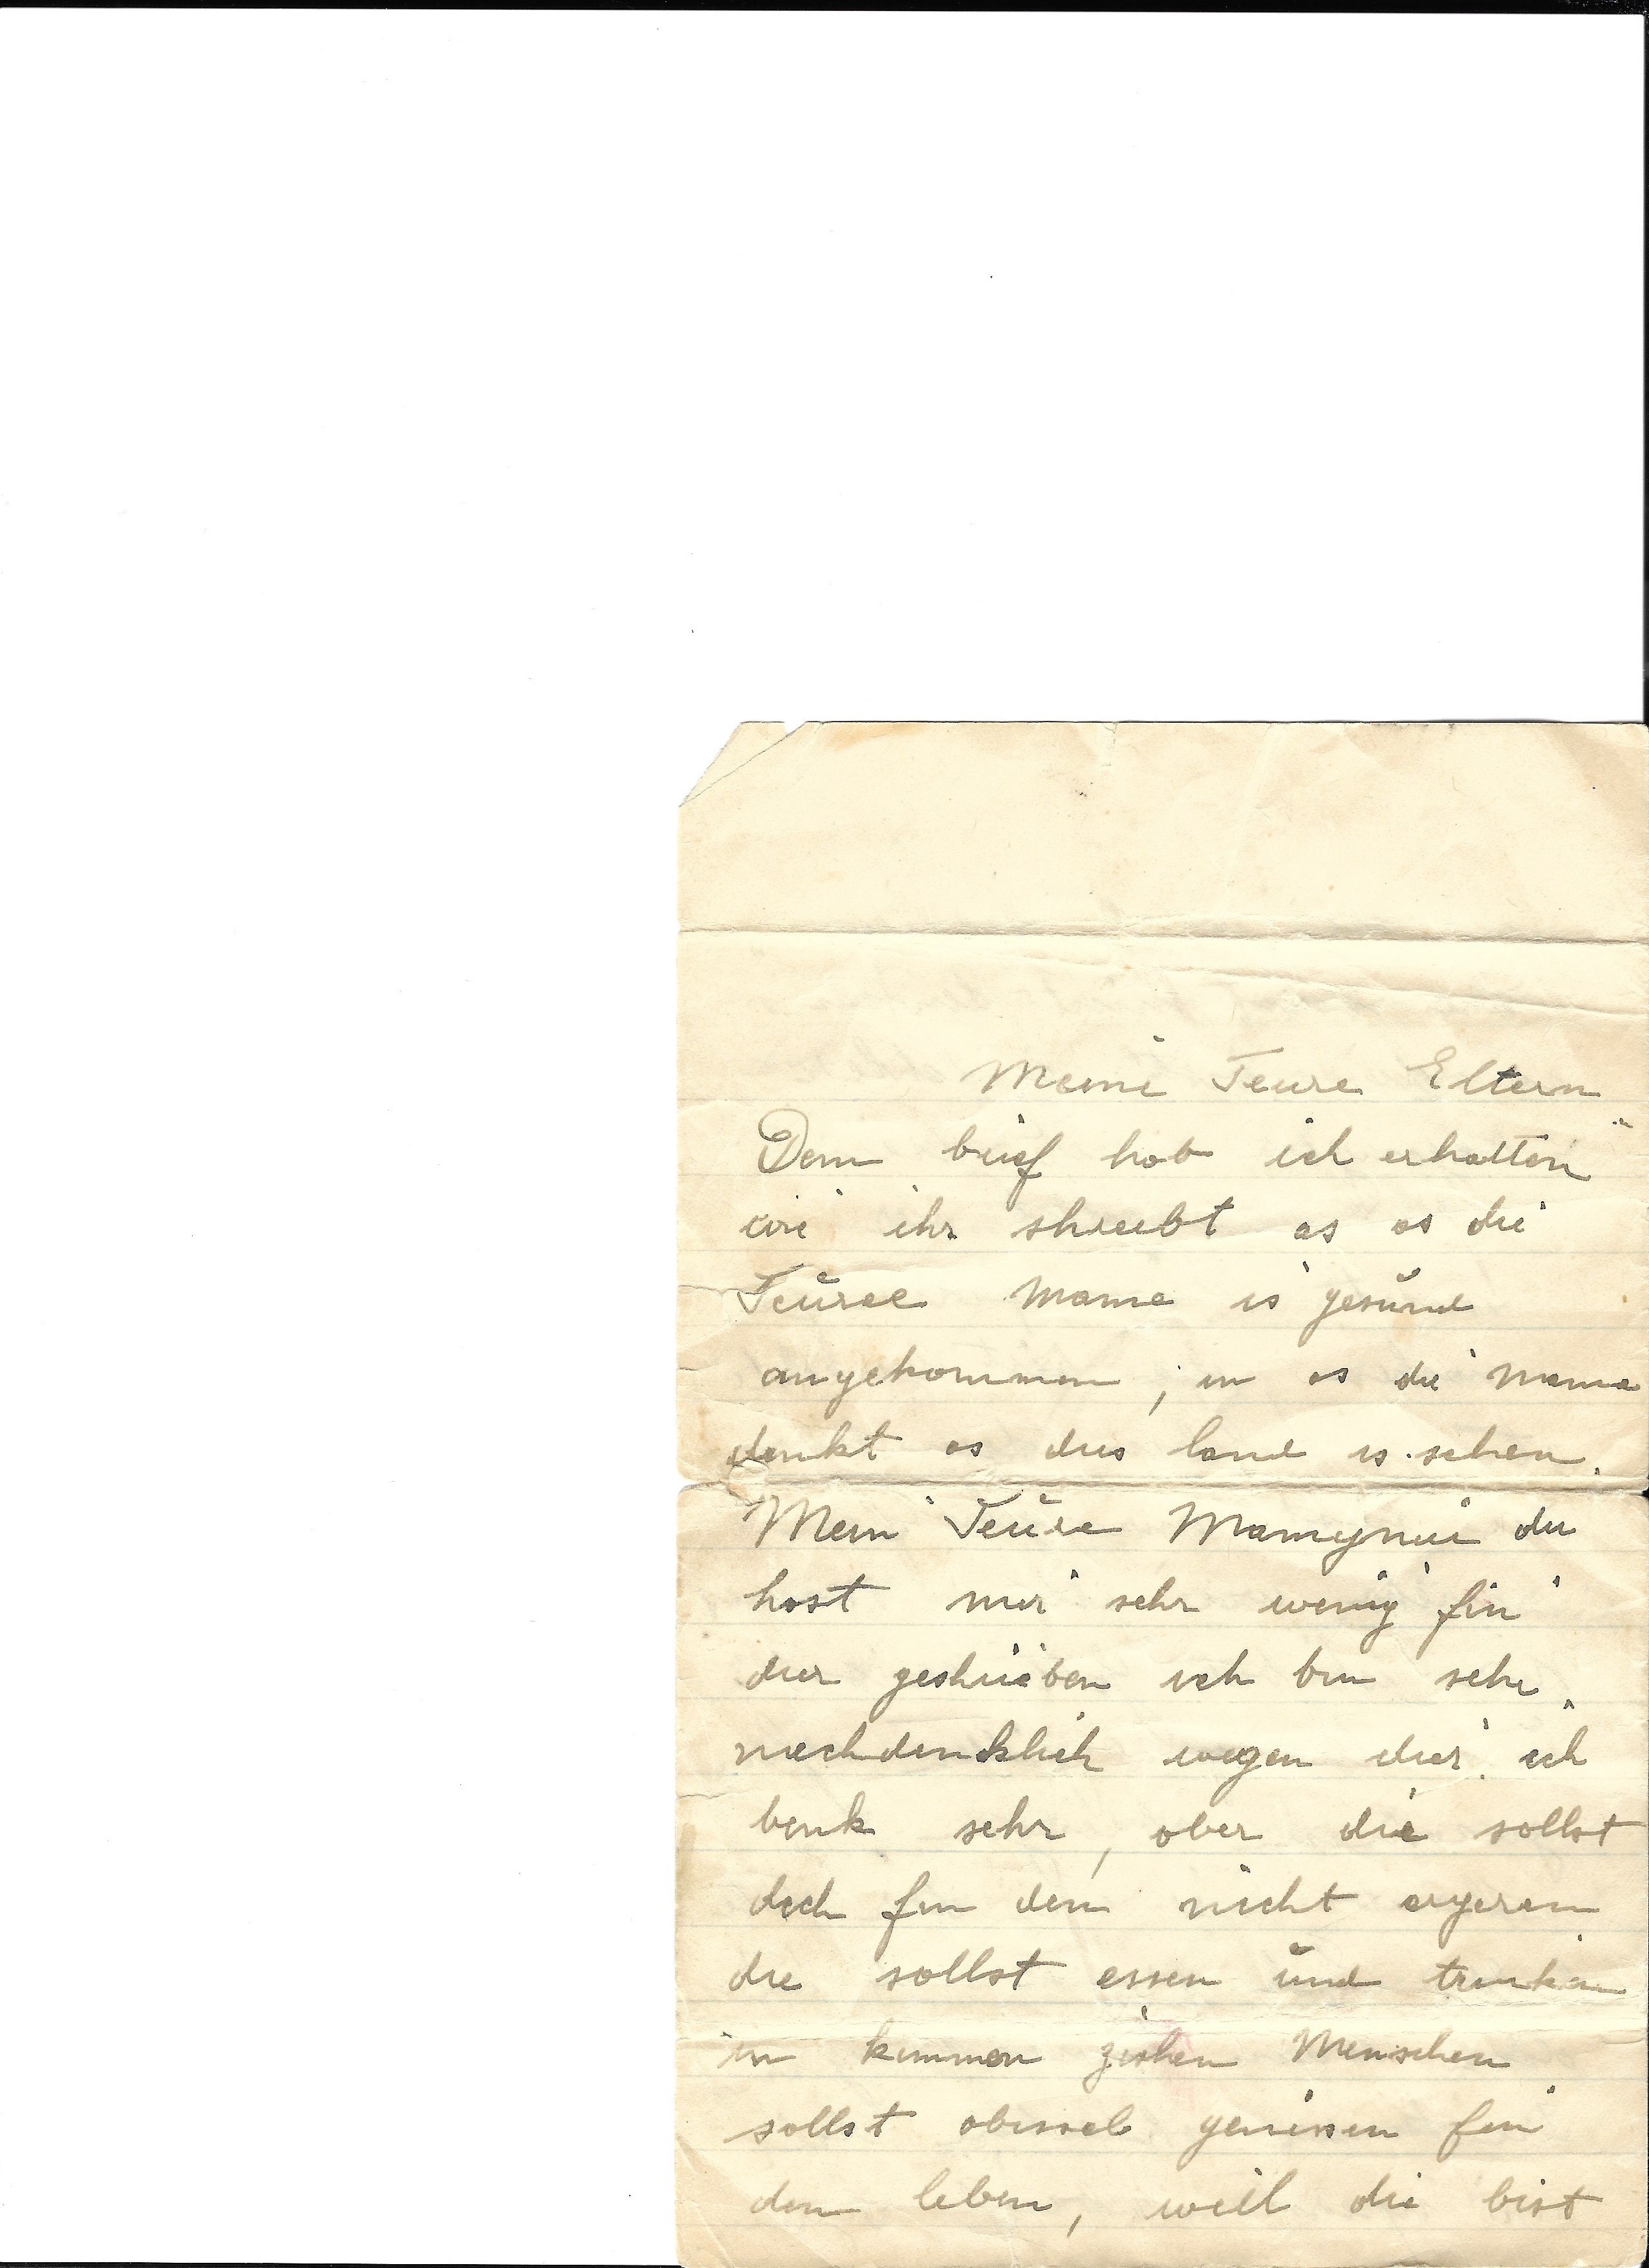 Meine Teure Eltern
Dem brief hob ich erhalten
wie ihr shreibt as as die
Teuree Mame is gesund
angekommen, in as die mame
denkt as dus land is schen.
Mein Teure Mamynui du
host mir sehr wenig fin
dier geshrieben ich bin sehr
nachdenklich wegen dier. ich
benk sehr, ober die sollst
dich fin dem nicht ergeren
die sollst essen und trinken
in kimmen zishen Menschen
sollst abissel genissen fin
dem leben, weil die bist